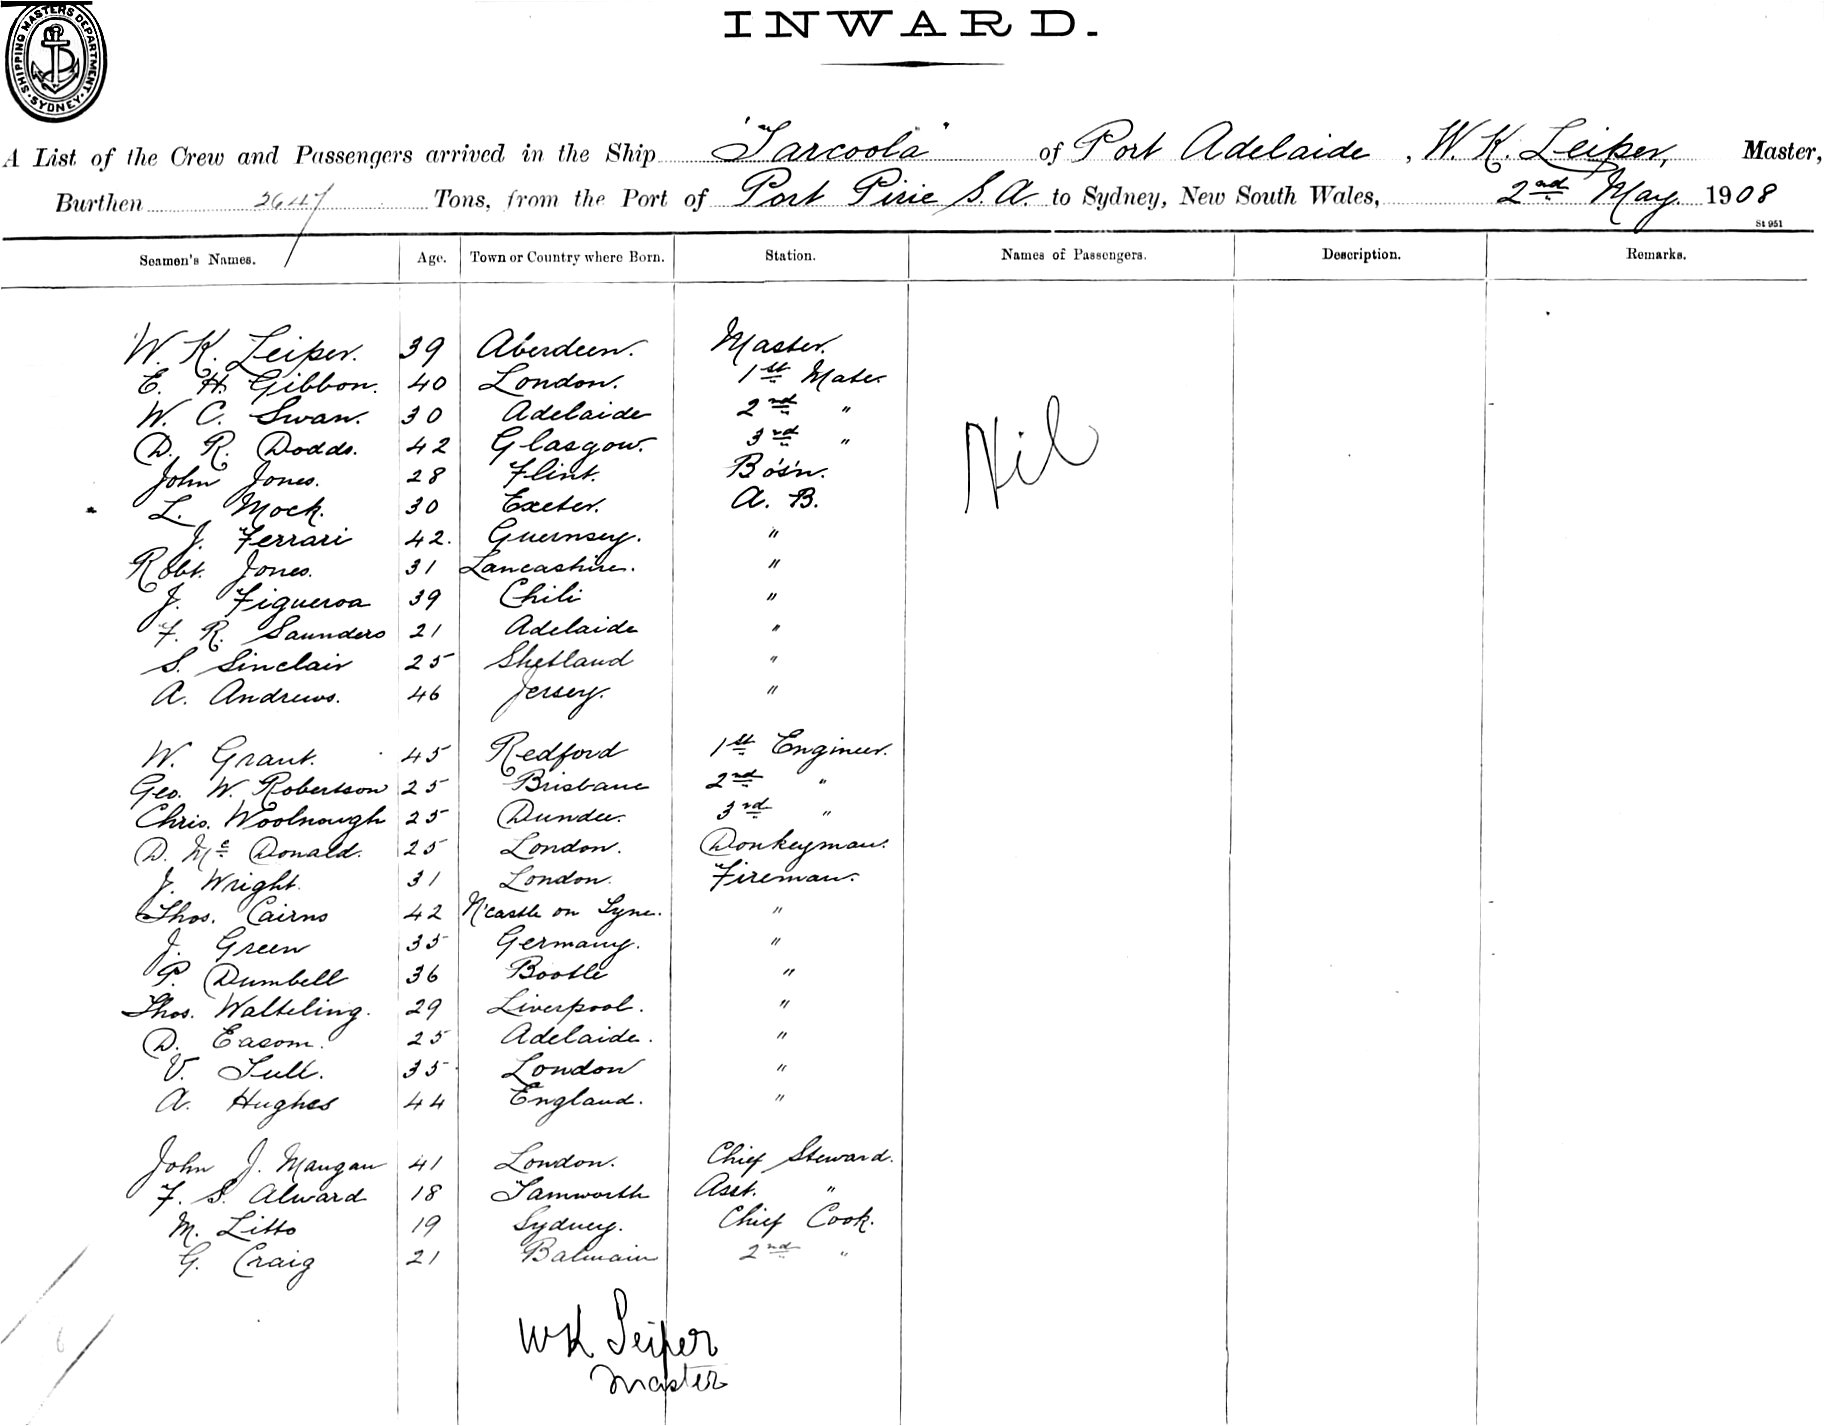 SHIPPING MASTERS DEPARTMENT. SYDNEY.
INWARD.
A List of the Crew and Passengers arrived in the Ship "Tarcoola" of Port Adelaide, W. K. Leiper, Master,
Burthen 2647 Tons, from the Port of Port Pirie S. A. to Sydney, New South Wales, 2nd May 1908
St 951
Seamen's Names. Age. Town or Country where Born. Station. Names of Passengers. Description. Remarks.
W. K. Leiper. 39 Aberdeen. Master.
E. H. Gibbon. 40 London. 1st Mate.
W. C. Swan. 30 Adelaide 2nd "
D. R. Dodds. 42 Glasgow. 3rd "
Nil
John Jones. 28 Flint. Bo's'n.
L. Mock. 30 Exeter. A. B.
J. Ferrari 42. Guernsey. "
Robt. Jones. 31 Lancashire. "
J. Figueroa 39 Chili "
F. R. Saunders 21 Adelaide "
S. Sinclair 25 Shetland "
A. Andrews. 46 Jersey. "
W. Grant. 45 Redford 1st Engineer.
Geo. W. Robertson 25 Brisbane 2nd "
Chris. Woolnough 25 Dundee. 3rd "
D. Mc Donald. 25 London. Donkeyman.
J. Wright. 31 London. Fireman.
Thos. Cairns 42 N'castle on Tyne. "
J. Green 35 Germany. "
P. Dumbell 36 Bootle "
Thos. Walteling. 29 Liverpool. "
D. Easom. 25 Adelaide. "
V. Tull. 35 London "
A. Hughes 44 England. "
John J. Mangan 41 London. Chief Steward.
F. S. Alward 18 Tamworth Asst. "
M. Litto 19 Sydney. Chief Cook.
G. Craig 21 Balmain 2nd "
W K Leiper
Master